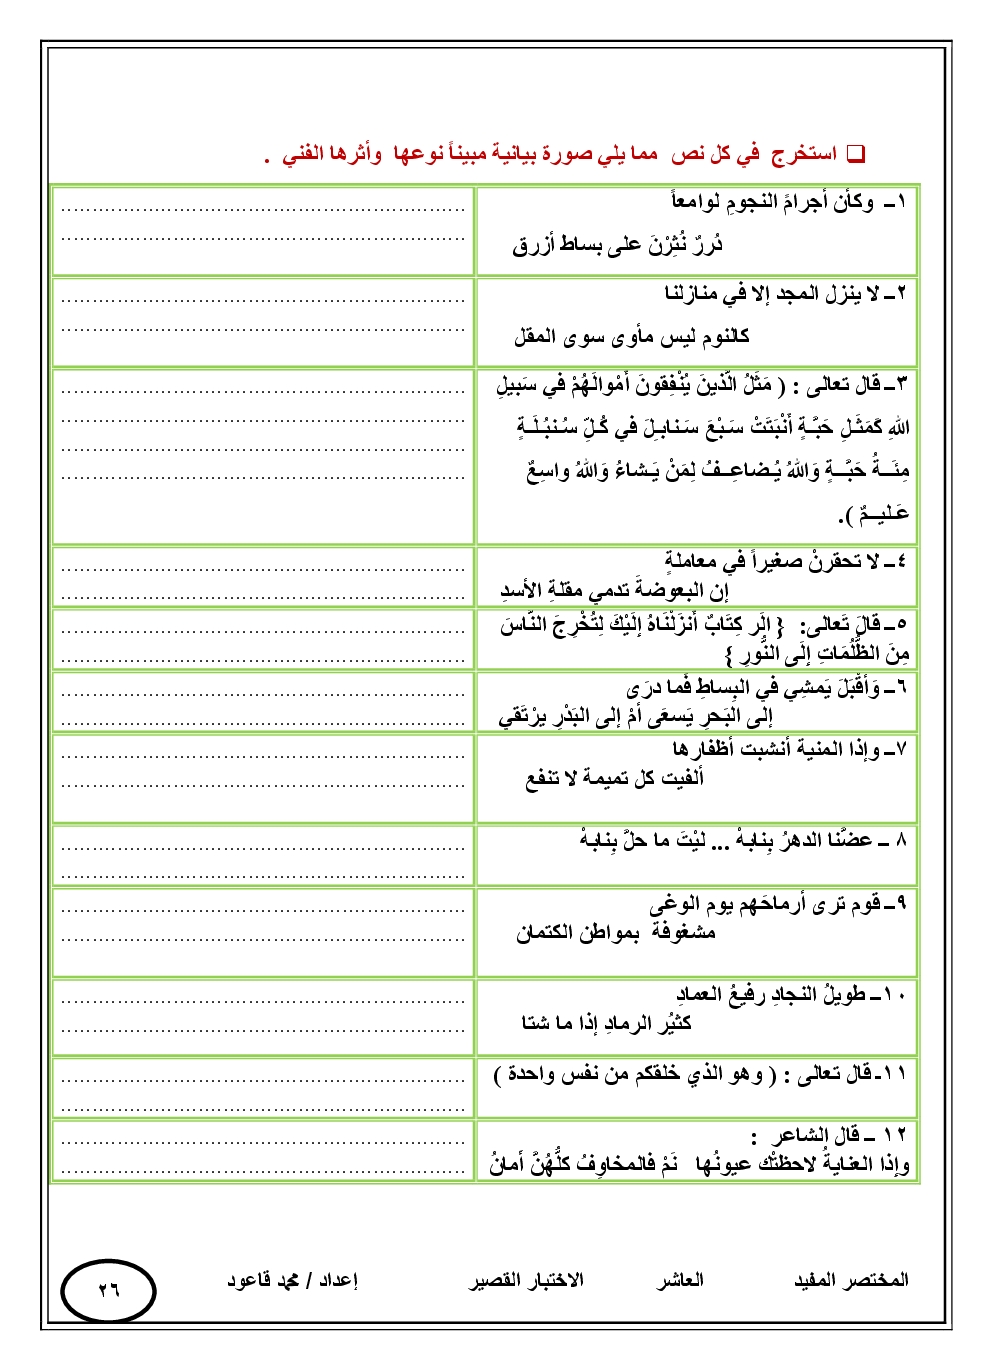 ❑ استخرج في كل نص مما يلي صورة بيانية مبيناً نوعها وأثرها الفني .
١ــ وكأن أجرامَ النجومِ لوامعاً
دُررٌ نُثِرْنَ على بساط أزرق
٢ــ لا ينزل المجد إلا في منازلنا
كالنوم ليس مأوى سوى المقل
٣ــ قال تعالى : ( مَثَلُ الَّذينَ يُنْفِقونَ أَمْوالَهُمْ في سَبيلِ
اللهِ كَمَثَلِ حَبَّةٍ أَنْبَتَتْ سَبْعَ سَنابِلَ في كُلِّ سُنبُلَةٍ
مِئَةُ حَبَّةٍ وَاللهُ يُضاعِفُ لِمَنْ يَشاءُ وَاللهُ واسِعٌ
عَليمٌ ).
٤ــ لا تحقرنْ صغيراً في معاملةٍ
إن البعوضةَ تدمي مقلةِ الأسدِ
٥ــ قالَ تَعالى: { الَر كِتَابٌ أَنزَلْنَاهُ إِلَيْكَ لِتُخْرِجَ النَّاسَ
مِنَ الظُّلُمَاتِ إِلَى النُّورِ }
٦ــ وَأَقْبَلَ يَمشِي في البِساطِ فَما درَى
إلى البَحرِ يَسعَى أمْ إلى البَدْرِ يرْتَقي
٧ــ وإذا المنية أنشبت أظفارها
ألفيت كل تميمة لا تنفع
٨ ــ عضَّنا الدهرُ بِنابهْ ... ليْتَ ما حلَّ بِنابهْ
٩ــ قوم ترى أرماحَهم يوم الوغى
مشغوفة بمواطن الكتمان
١٠ــ طويلُ النجادِ رفيعُ العمادِ
كثيُر الرمادِ إذا ما شتا
١١ـ قال تعالى : ( وهو الذي خلقكم من نفس واحدة )
١٢ ــ قال الشاعر :
وإذا العنايةُ لاحظتْك عيونُها نَمْ فالمخاوِفُ كلُّهُنَّ أمانُ
المختصر المفيد العاشر الاختبار القصير إعداد / محمد قاعود ٢٦